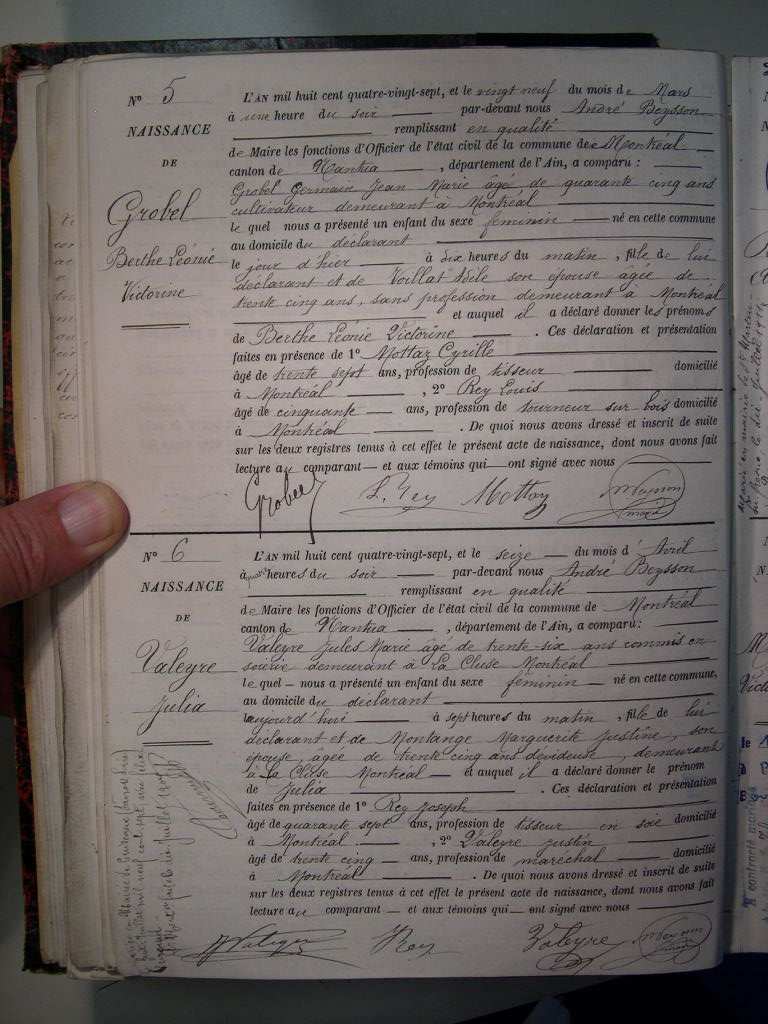 N° 5
NAISSANCE
DE
Grobel
Berthe Léonie
Victorine
L'AN mil huit cent quatre-vingt-sept, et le vingt neuf du mois de Mars
à une heure du soir par-devant nous André Beysson
remplissant en qualité
de Maire les fonctions d'Officier de l'état civil de la commune de Montréal
canton de Nantua, département de l'Ain, a comparu :
Grobel Germain Jean Marie âgé de quarante cinq ans
cultivateur demeurant à Montréal
le quel nous a présenté un enfant du sexe féminin né en cette commune
au domicile du déclarant
le jour d'hier à dix heures du matin, fille de lui
déclarant et de Voillat Adèle son épouse âgée de
trente cinq ans, sans profession demeurant à Montréal
et auquel il a déclaré donner les prénoms
de Berthe Léonie Victorine. Ces déclaration et présentation
faites en présence de 1° Mottaz Cyrille
âgé de trente sept ans, profession de tisseur domicilié
à Montréal, 2° Rey Louis
âgé de cinquante ans, profession de tourneur sur bois domicilié
à Montréal. De quoi nous avons dressé et inscrit de suite
sur les deux registres tenus à cet effet le présent acte de naissance, dont nous avons fait
lecture au comparant et aux témoins qui ont signé avec nous
Grobel L. Rey Mottaz
N° 6
NAISSANCE
DE
Valeyre
Julia
L'AN mil huit cent quatre-vingt-sept, et le seize du mois d'Avril
à quatre heures du soir par-devant nous André Beysson
remplissant en qualité
de Maire les fonctions d'Officier de l'état civil de la commune de Montréal
canton de Nantua, département de l'Ain, a comparu :
Valeyre Jules Marie âgé de trente-six ans commis en
soierie demeurant à La Cluse Montréal
le quel nous a présenté un enfant du sexe féminin né en cette commune,
au domicile du déclarant
aujourd'hui à sept heures du matin, fille de lui
déclarant et de Montange Marguerite Justine, son
épouse âgée de trente cinq ans dévideuse, demeurant
à La Cluse Montréal et auquel il a déclaré donner le prénom
de Julia. Ces déclaration et présentation
faites en présence de 1° Rey Joseph
âgé de quarante sept ans, profession de tisseur en soie domicilié
à Montréal, 2° Valeyre Justin
âgé de trente cinq ans, profession de maréchal domicilié
à Montréal. De quoi nous avons dressé et inscrit de suite
sur les deux registres tenus à cet effet le présent acte de naissance, dont nous avons fait
lecture au comparant et aux témoins qui ont signé avec nous
Rey Valeyre